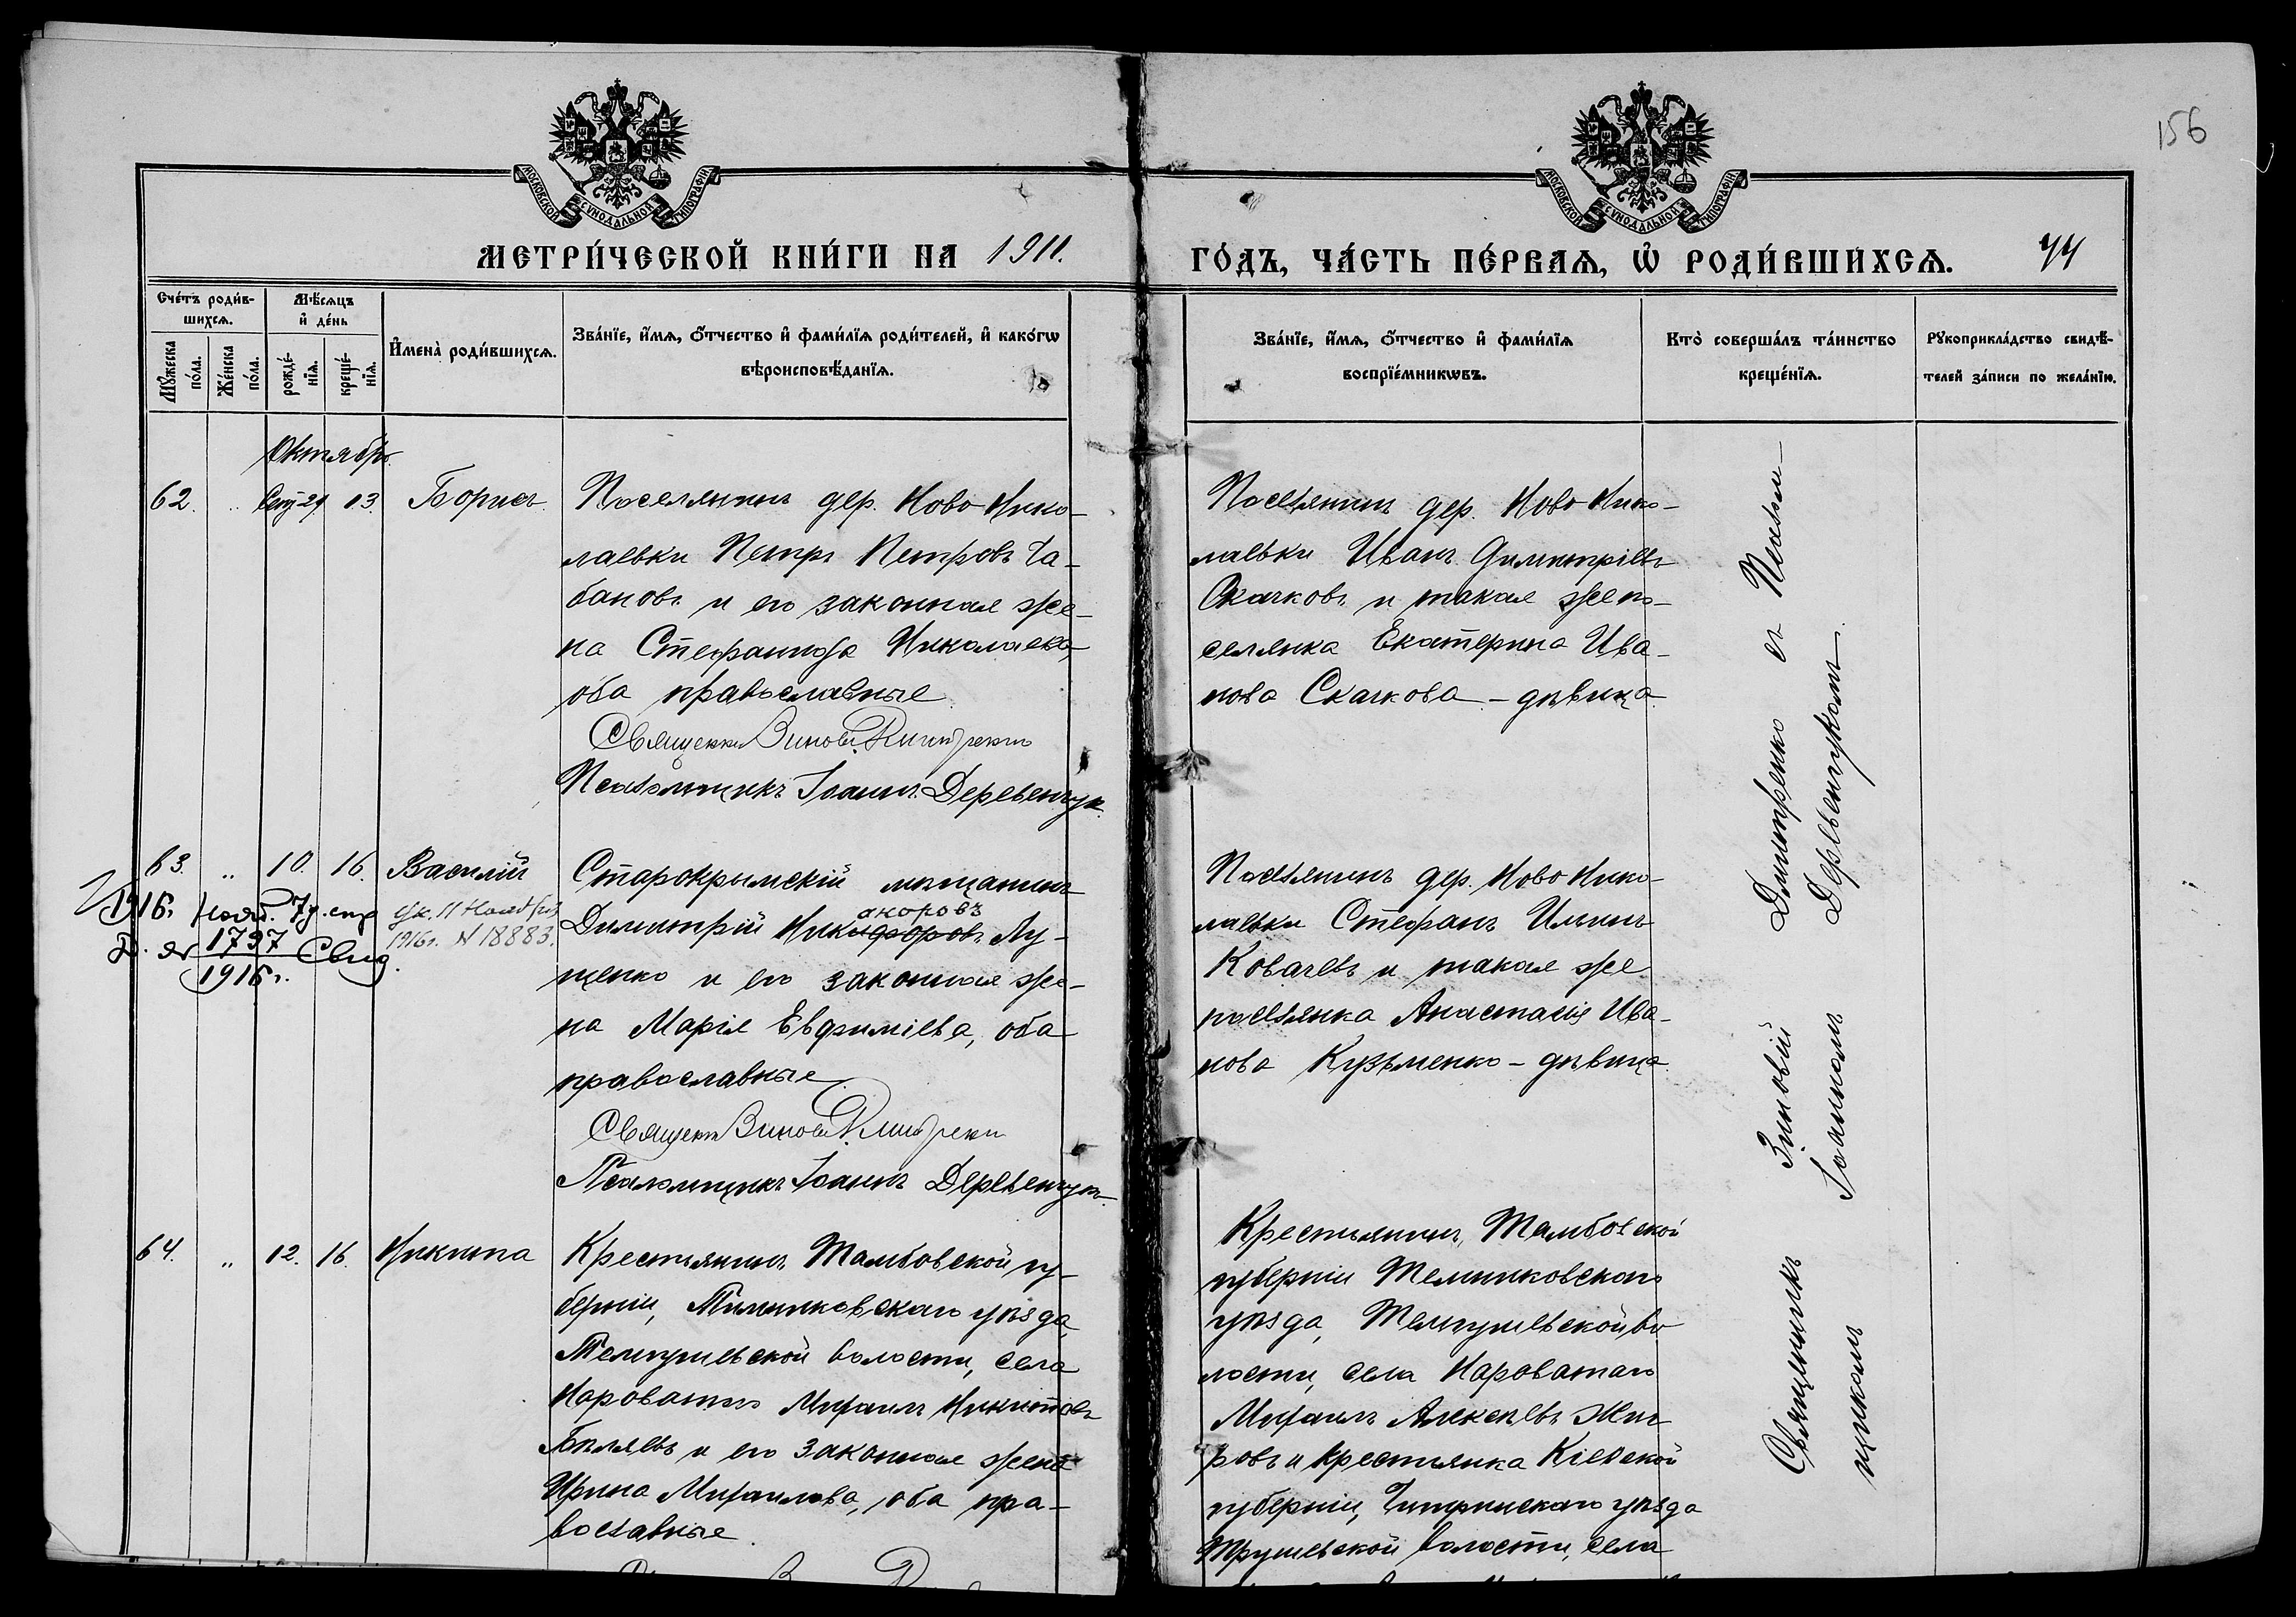 156
МОСКОВСКОЙ СУНОДАЛЬНОЙ ТИПОГРАФІИ
МОСКОВСКОЙ СУНОДАЛЬНОЙ ТИПОГРАФІИ
МЕТРИ́ЧЕСКОЙ КНИ́ГИ НА 1911.
ГО́ДЪ, ЧА́СТЬ ПЕ́РВАѦ, Ѡ҆ РОДИ́ВШИХСѦ. 44
Сче́тъ роди́в-
шихсѧ.
Мꙋ́жеска
по́ла.
Же́нска
по́ла.
Мѣ́сѧцъ
и҆ де́нь
рожде́-
нїѧ.
креще́-
нїѧ.
И҆мена̀ роди́вшихсѧ.
Зва́нїе, и҆́мѧ, ѻ҆́тчество и҆ фами́лїѧ роди́телей, и҆ како́гѡ
вѣроисповѣ́данїѧ.
Зва́нїе, и҆́мѧ, ѻ҆́тчество и҆ фами́лїѧ
воспрїе́мникѡвъ.
Кто̀ соверша́лъ та́инство
креще́нїѧ.
Рꙋкоприкла́дство свидѣ́-
телей за́писи по жела́нїю.
Октябрь.
62. „ Сент. 29. 03. Борисъ.
Поселянинъ дер. Ново Нико-
лаевки Петръ Петровъ Ча-
бановъ и его законная же-
на Стефанида Николаева,
оба православные.
Священникъ Зиновій Димитренко
Псаломщикъ Іоаннъ Деревенчукъ.
Поселянинъ дер. Ново Нико-
лаевки Иванъ Димитріевъ
Скачковъ и такая же по-
селянка Екатерина Ива-
нова Скачкова – дѣвица.
63. „ 10. 16. Василій
Старокрымскій мѣщанинъ
Димитрій Никифоровъ Лу-
аноровъ
щенко и его законная же-
на Марія Евфиміева, оба
православные.
Священникъ Зиновій Димитренко
Псаломщикъ Іоаннъ Деревенчукъ.
1916г. нояб. 7 д.
№ 1797 Свид.
1916г.
Ук. 11 Нояб
1916г. № 18883.
Поселянинъ дер. Ново Нико-
лаевки Стефанъ Ильинъ
Ковачевъ и такая же
поселянка Анастасія Ива-
нова Кузьменко – дѣвица.
64. „ 12. 16. Никита
Крестьянинъ Тамбовской гу-
берніи, Темниковскаго уѣзда,
Темгушевской волости, села
Нароватаго Михаилъ Никитовъ
Бѣляевъ и его законная жена
Ирина Михаилова, оба пра-
вославные.
Крестьянинъ Тамбовской
губерніи Темниковскаго
уѣзда, Темгушевской во-
лости, села Нароватаго
Михаилъ Алексѣевъ Жи-
ровъ и крестьянка Кіевской
губерніи, Чигринскаго уѣзда
Трушевской волости, села
Священникъ Зиновій Димитренко съ Псалом-
щикомъ Іоанномъ Деревенчукомъ.